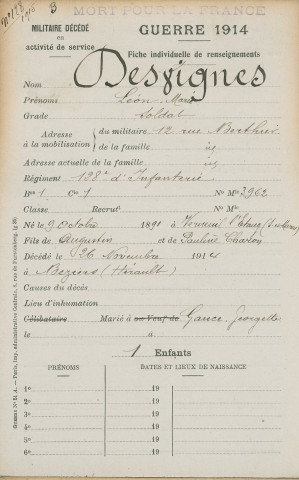 MORT POUR LA FRANCE
3
MILITAIRE DÉCÉDÉ
en
activité de service
GUERRE 1914
Fiche individuelle de renseignements
Nom Desvignes
Prénoms Léon Marie
Grade Soldat
Adresse à la mobilisation
du militaire 12 rue Berthier
de la famille id
Adresse actuelle de la famille id
Régiment 128e d'Infanterie
Bon 1 Cie 1 No Mle 3962
Classe Recrut No Mle
Né le 9 Octobre 1891 à Verneuil l'Etang
Fils de Augustin et de Pauline
Décédé le 26 Novembre 1914
à Béziers (Hérault)
Causes du décès
Lieu d'inhumation
Célibataire Marié à ou Veuf de Georgette
le à
1 Enfants
PRÉNOMS DATES ET LIEUX DE NAISSANCE
1o 19
2o 19
3o 19
4o 19
5o 19
6o 19